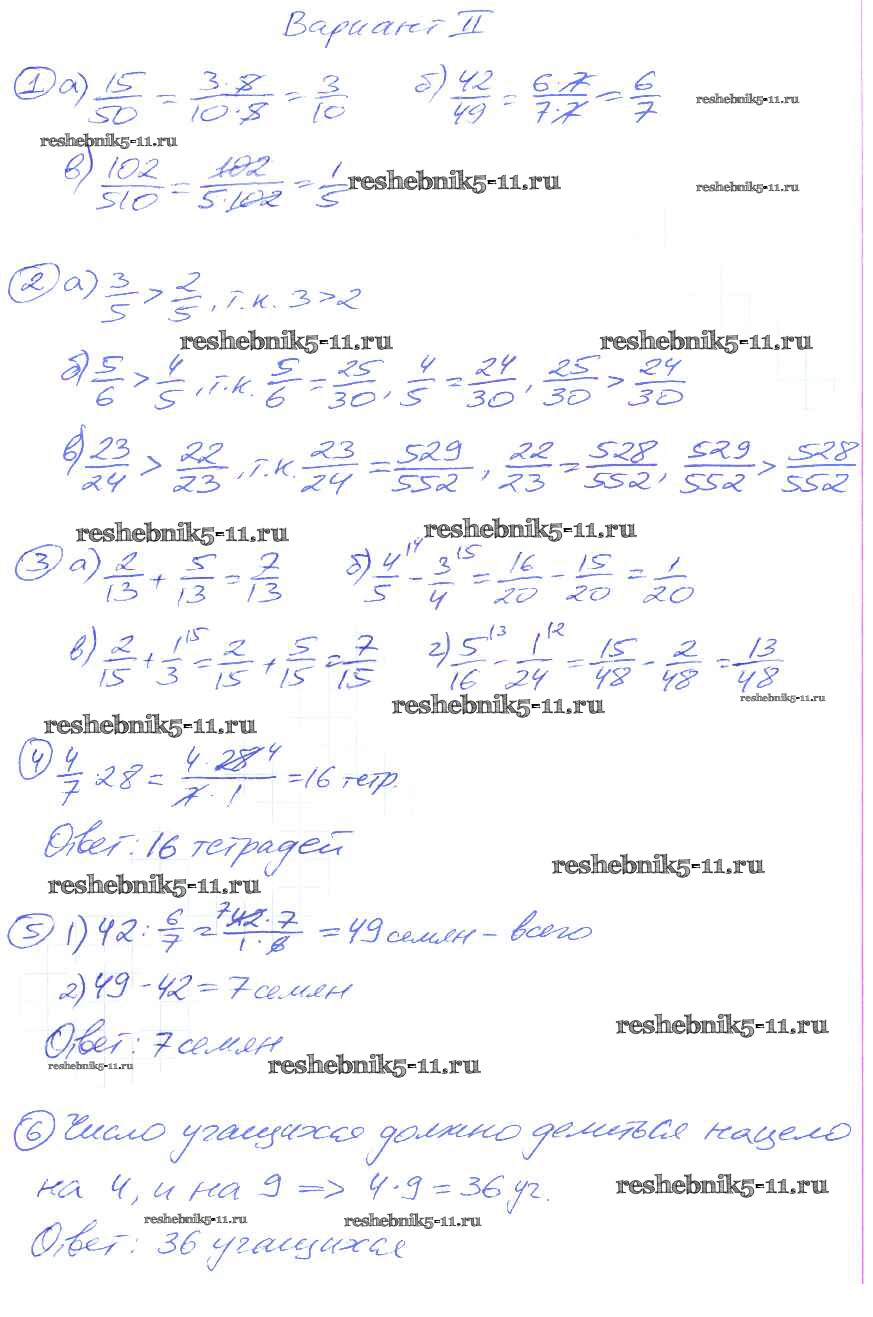 Вариант II
1 а) 15/50 = 3·5/10·5 = 3/10 б) 42/49 = 6·7/7·7 = 6/7
reshebnik5-11.ru
reshebnik5-11.ru
в) 102/510 = 102/5·102 = 1/5
reshebnik5-11.ru
reshebnik5-11.ru
2 а) 3/5 > 2/5, т.к. 3>2
reshebnik5-11.ru
reshebnik5-11.ru
б) 5/6 > 4/5, т.к. 5/6 = 25/30, 4/5 = 24/30, 25/30 > 24/30
в) 23/24 > 22/23, т.к. 23/24 = 529/552, 22/23 = 528/552, 529/552 > 528/552
reshebnik5-11.ru
reshebnik5-11.ru
3 а) 2/13 + 5/13 = 7/13 б) 4/5 |4 - 3/4 |5 = 16/20 - 15/20 = 1/20
в) 2/15 + 1/3 |5 = 2/15 + 5/15 = 7/15 г) 5/16 |3 - 1/24 |2 = 15/48 - 2/48 = 13/48
reshebnik5-11.ru
reshebnik5-11.ru
reshebnik5-11.ru
4 4/7 · 28 = 4·28 4/7·1 = 16 тетр.
Ответ: 16 тетрадей
reshebnik5-11.ru
reshebnik5-11.ru
5 1) 42 : 6/7 = 7 42·7/1·6 = 49 семян - всего
2) 49 - 42 = 7 семян
reshebnik5-11.ru
Ответ: 7 семян
reshebnik5-11.ru
reshebnik5-11.ru
6 Число учащихся должно делиться нацело
на 4, и на 9 => 4·9 = 36 уч.
reshebnik5-11.ru
reshebnik5-11.ru
reshebnik5-11.ru
Ответ: 36 учащихся